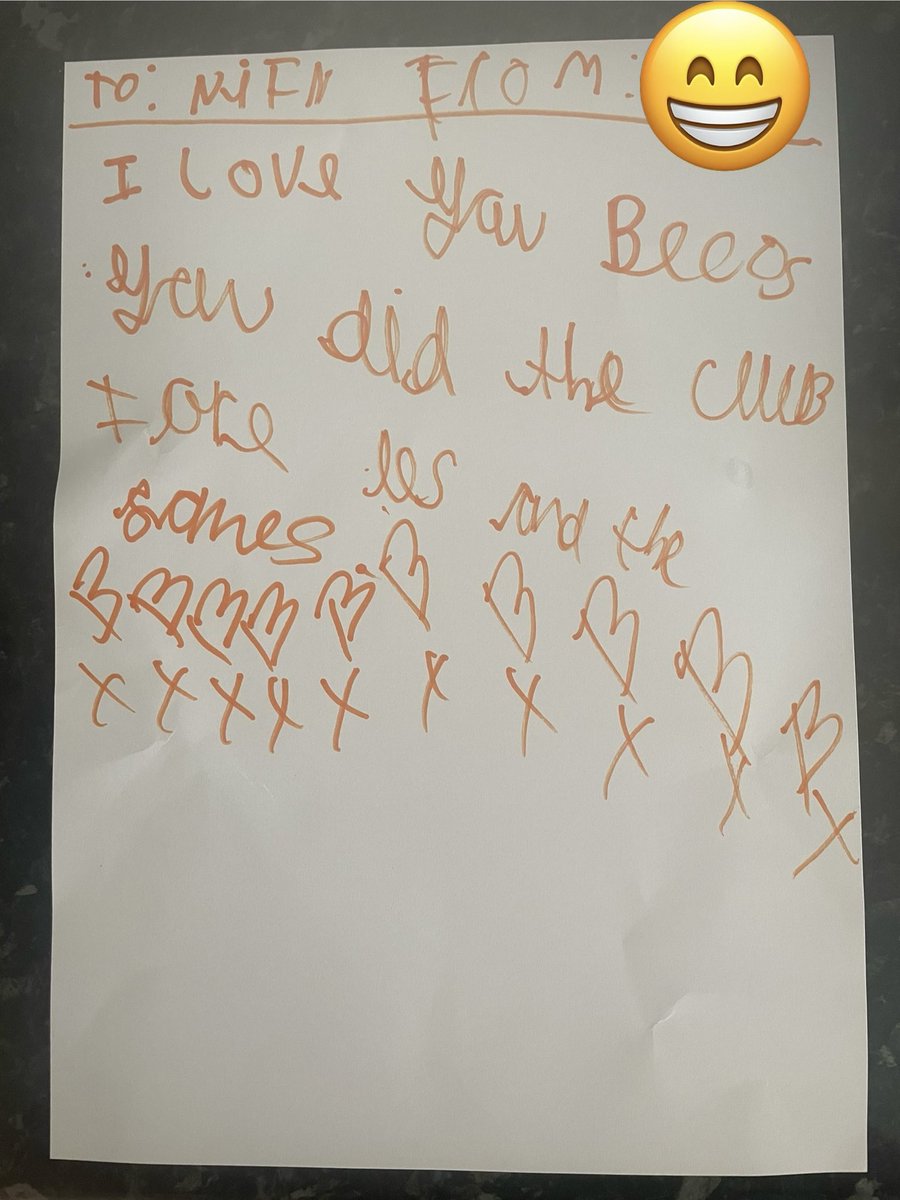 To: NiFN From:
I love you Becos
you did the CLUB
for us and the
games
x x x x x x x x x x